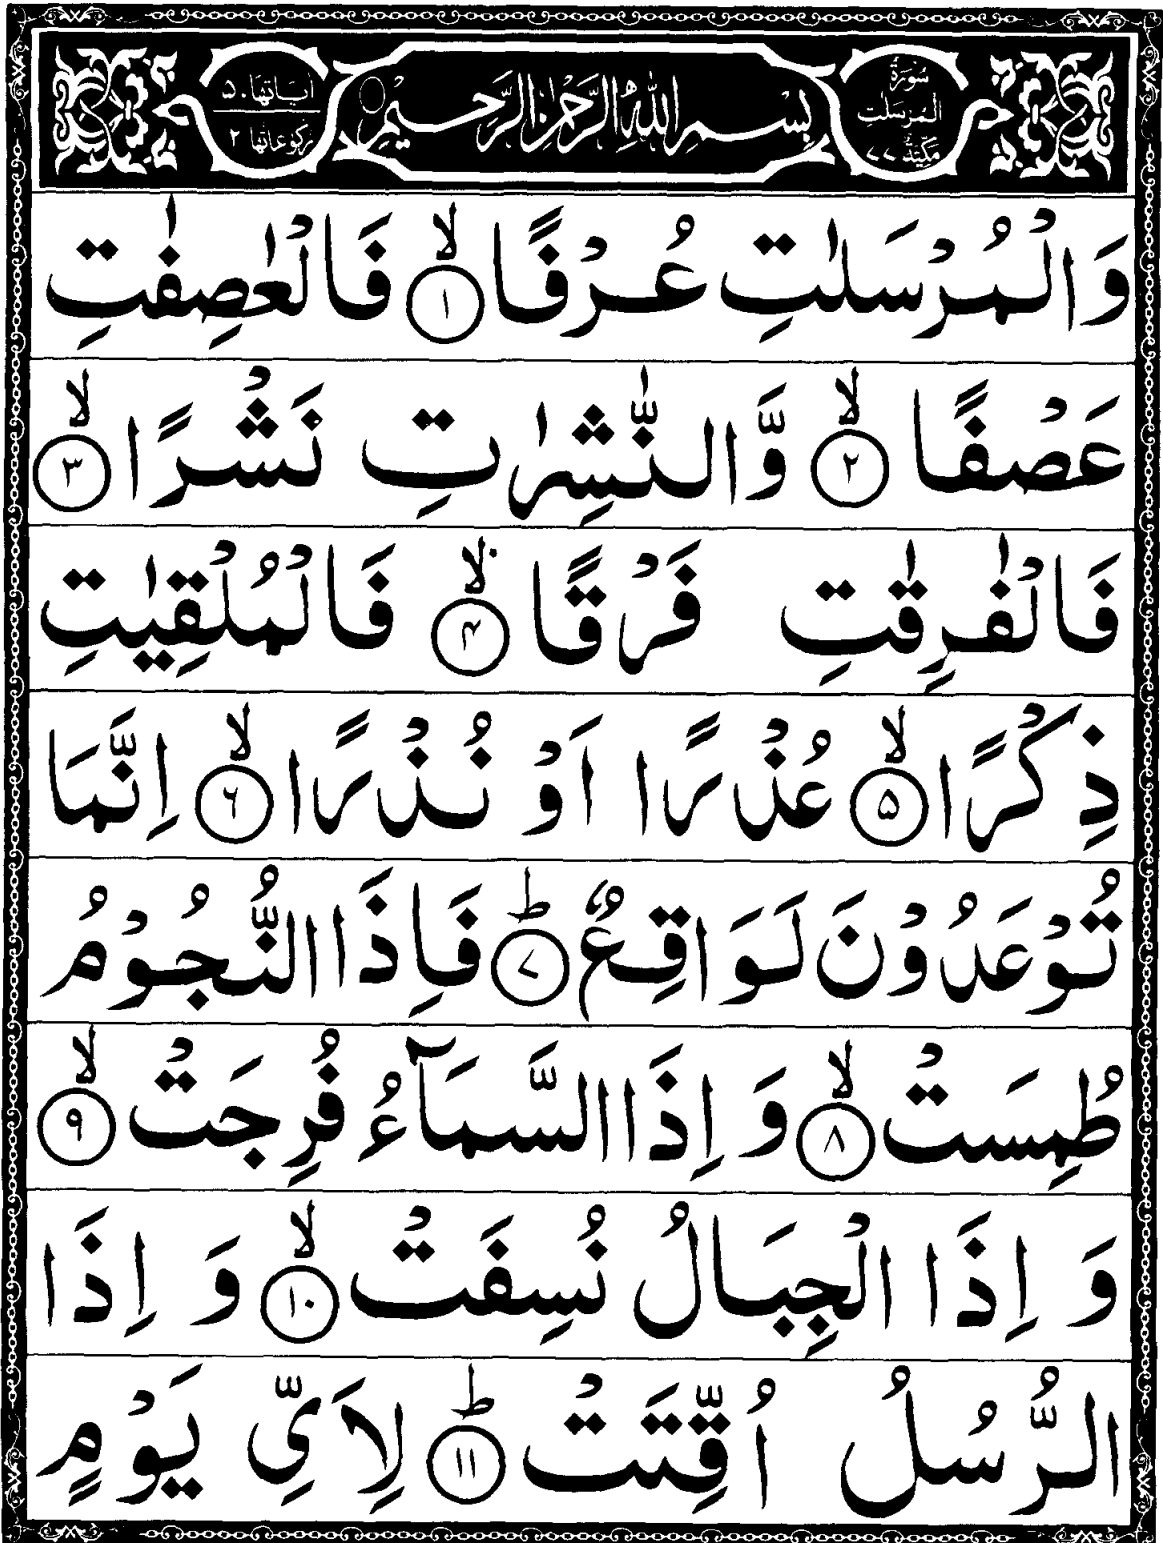 سُورَةُ المُرسَلٰتِ مَكِّيَّةٌ ٧٧
بِسْمِ اللّٰهِ الرَّحْمٰنِ الرَّحِيْمِ
اٰیاتها ۵۰
رکوعاتها ۲
وَالْمُرْسَلٰتِ عُرْفًا ۙ﴿۱﴾ فَالْعٰصِفٰتِ
عَصْفًا ۙ﴿۲﴾ وَّالنّٰشِرٰتِ نَشْرًا ۙ﴿۳﴾
فَالْفٰرِقٰتِ فَرْقًا ۙ﴿۴﴾ فَالْمُلْقِيٰتِ
ذِكْرًا ۙ﴿۵﴾ عُذْرًا اَوْ نُذْرًا ۙ﴿۶﴾ اِنَّمَا
تُوْعَدُوْنَ لَوَاقِعٌ ؕ﴿۷﴾ فَاِذَا النُّجُوْمُ
طُمِسَتْ ۙ﴿۸﴾ وَ اِذَا السَّمَآءُ فُرِجَتْ ۙ﴿۹﴾
وَ اِذَا الْجِبَالُ نُسِفَتْ ۙ﴿۱۰﴾ وَ اِذَا
الرُّسُلُ اُقِّتَتْ ؕ﴿۱۱﴾ لِاَيِّ يَوْمٍ